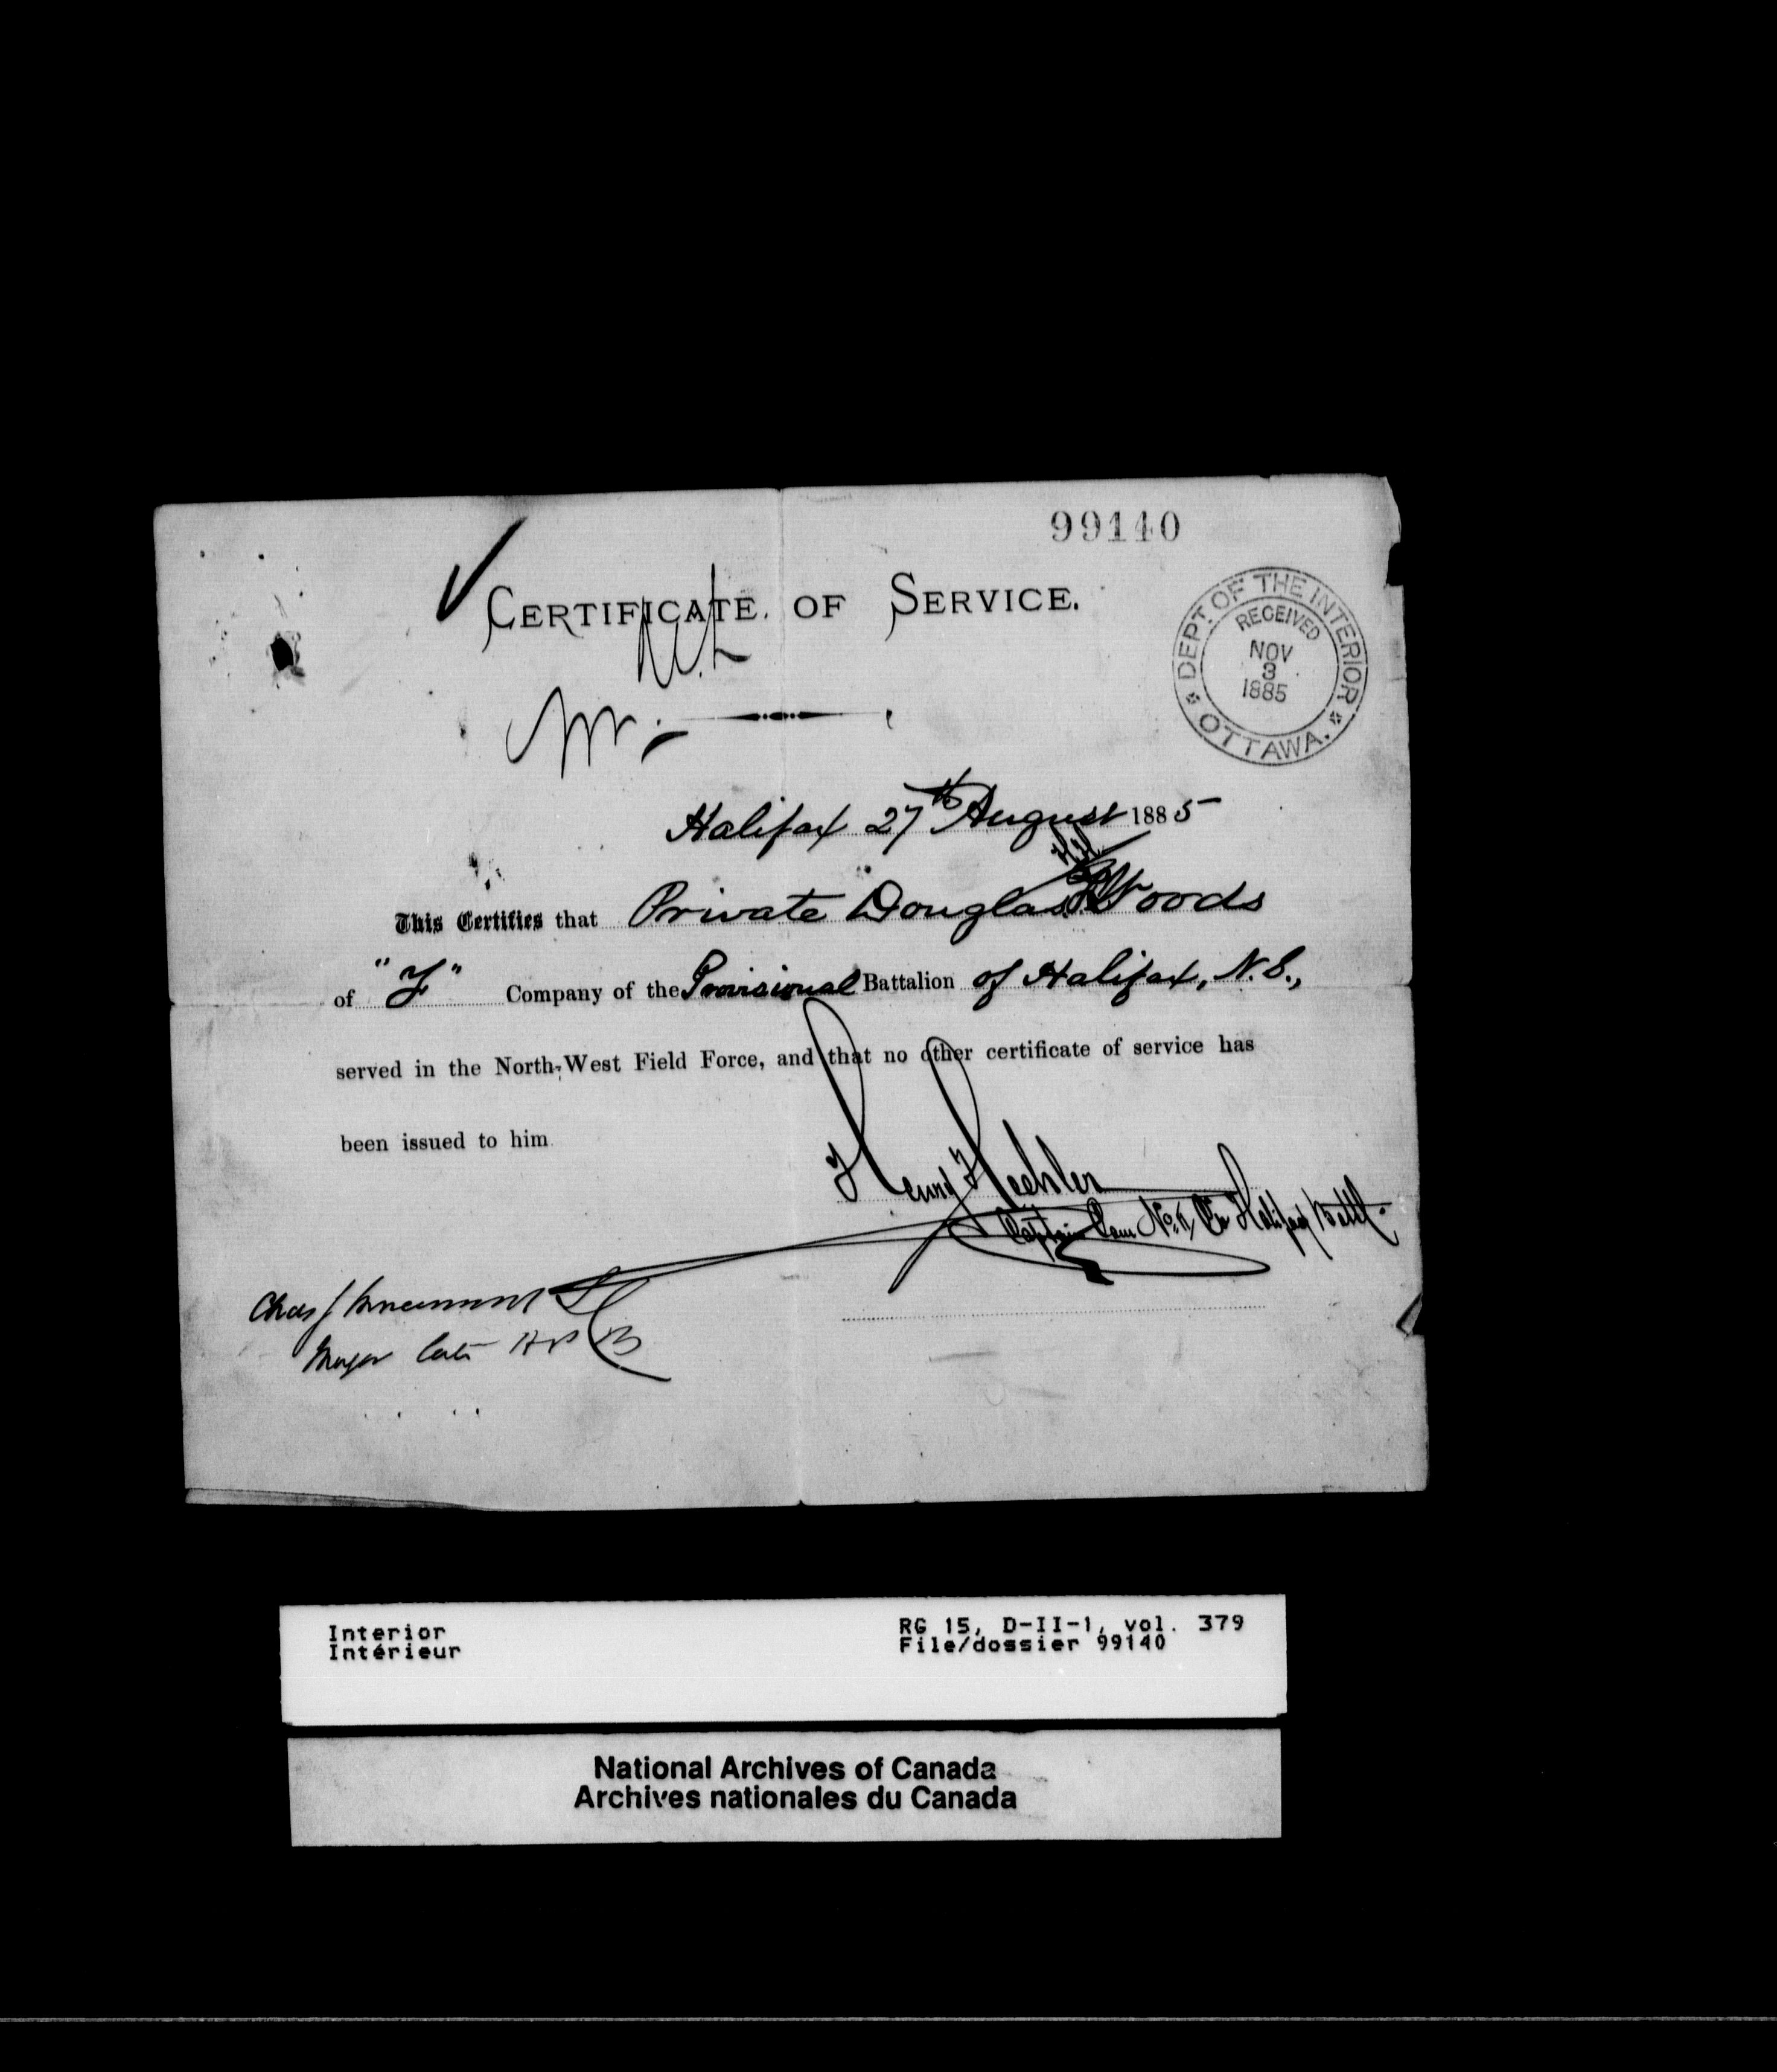 99140
CERTIFICATE OF SERVICE.
DEPT. OF THE INTERIOR
RECEIVED
NOV
3
1885
OTTAWA.
Halifax 27th August 1885
H.H.
This Certifies that Private Douglas Woods
of "F" Company of the Provisional Battalion of Halifax, N.S.,
served in the North-West Field Force, and that no other certificate of service has
been issued to him
Henry Hechler
Captain Com No. Co Halifax Battl.
Chas J
Major late
Interior
Intérieur
RG 15, D-II-1, vol. 379
File/dossier 99140
National Archives of Canada
Archives nationales du Canada